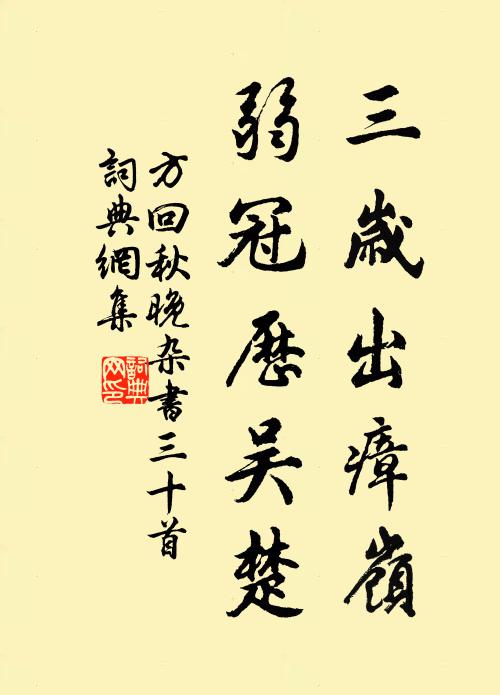 三歲出瘴嶺
弱冠歷吴楚
方回秋晚杂書三十首
詞典網集
詞典網印